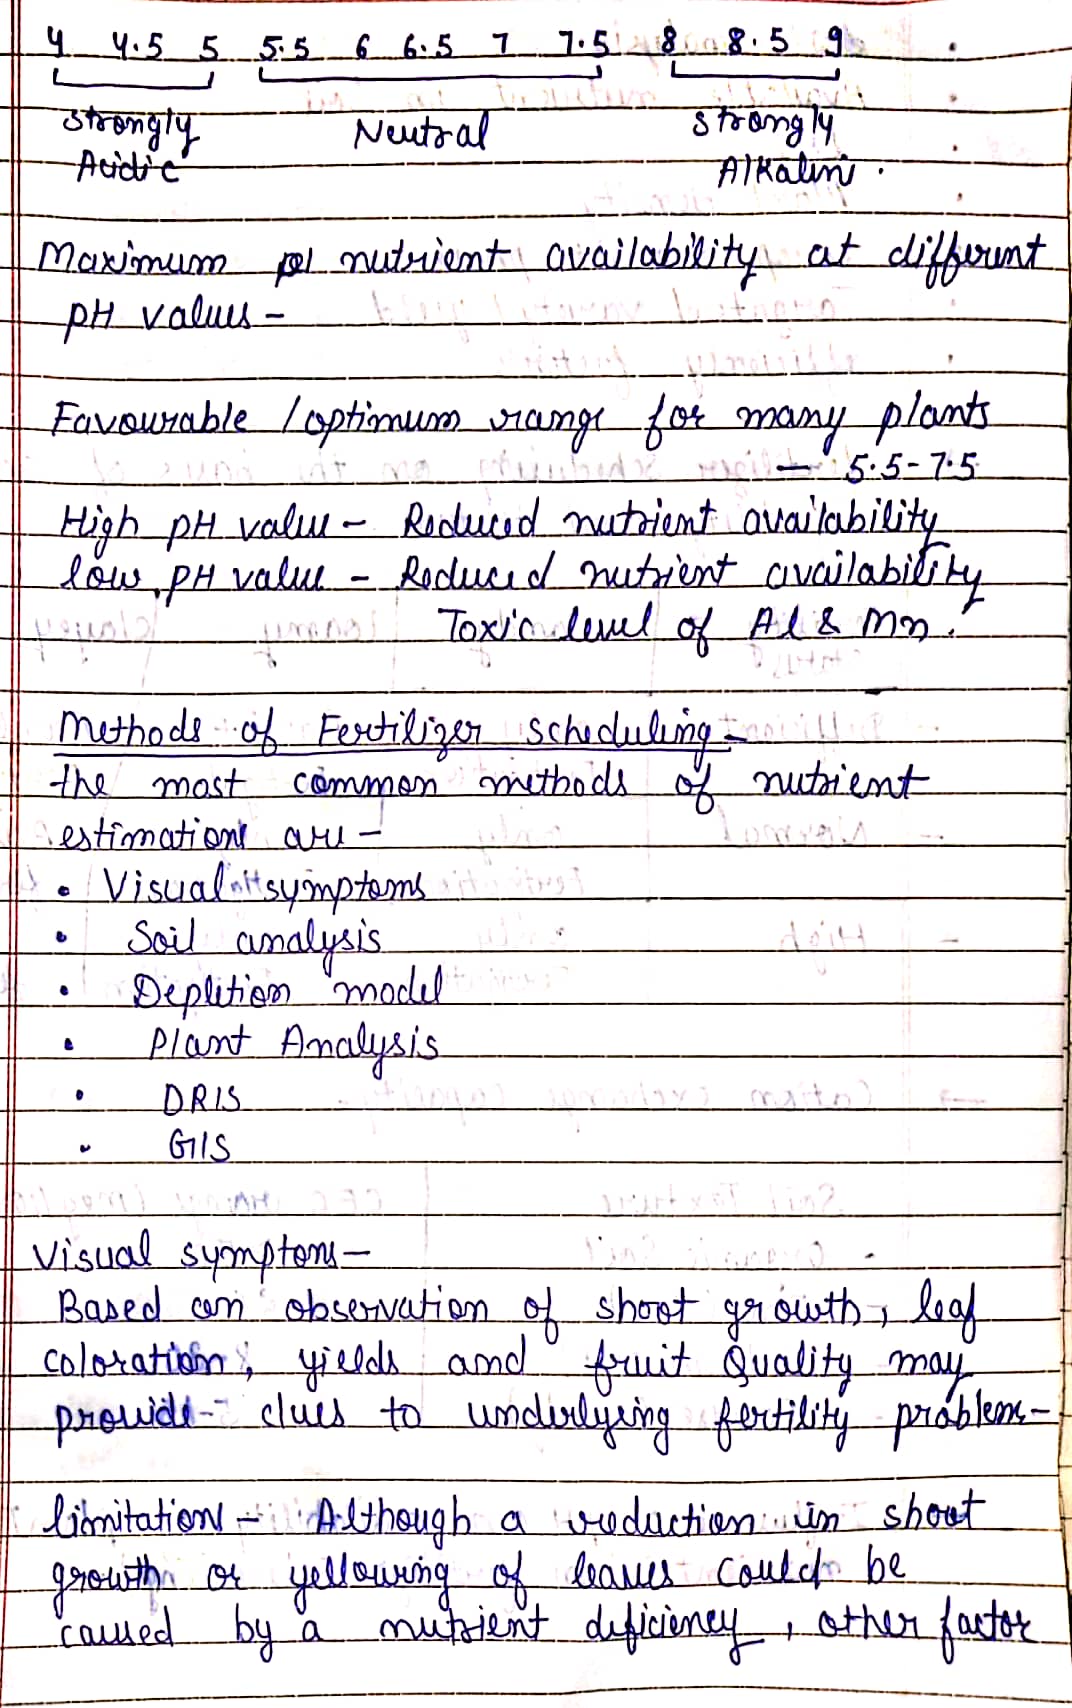 4 4.5 5 5.5 6 6.5 7 7.5 8 8.5 9
Strongly Neutral Strongly
Acidic Alkalini .
Maximum nutrient availability at different
pH values -
Favourable / optimum range for many plants
- 5.5-7.5
High pH value - Reduced nutrient availability
low pH value - Reduced nutrient availability
Toxic level of Al & Mn.
Methods of Fertilizer scheduling -
the most common methods of nutrient
estimations are -
• Visual symptoms
• Soil analysis
• Depletion model
• Plant Analysis
• DRIS
• GIS
Visual symptoms -
Based on observation of shoot growth, leaf
coloration, yields and fruit Quality may
provide - clues to underlyeing fertility problem -
limitations - Although a reduction in shoot
growth or yellowing of leaves could be
caused by a nutrient deficiency, other factor